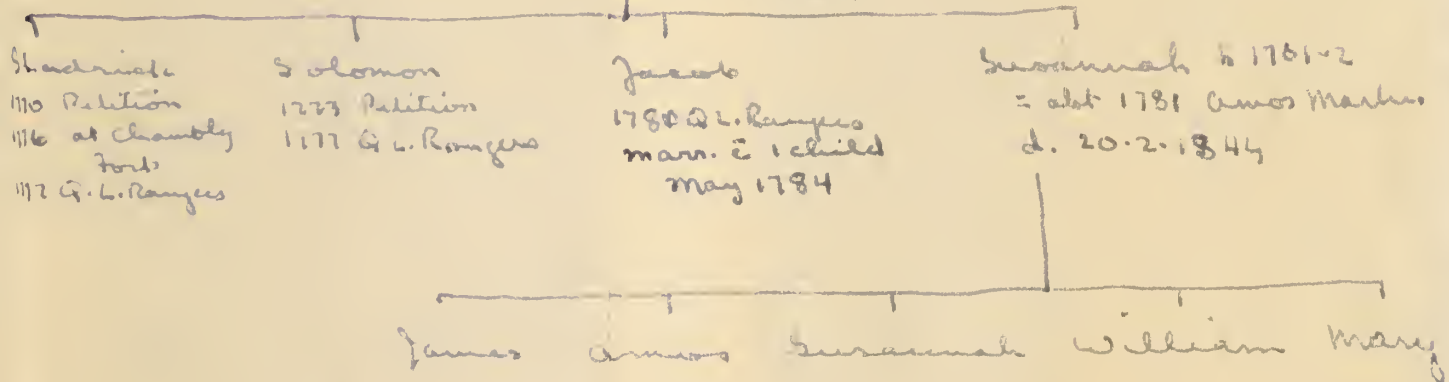 Shadrick
1770 Petition
1776 at Chambly
Fort
1777 Q. L. Rangers
Solomon
1773 Petition
1777 Q L. Rangers
Jacob
1780 Q L. Rangers
marr. c̄ 1 child
May 1784
Susannah b 1761-2
= abt 1781 Amos
d. 20.2.1844
James Amos Susannah William Mary